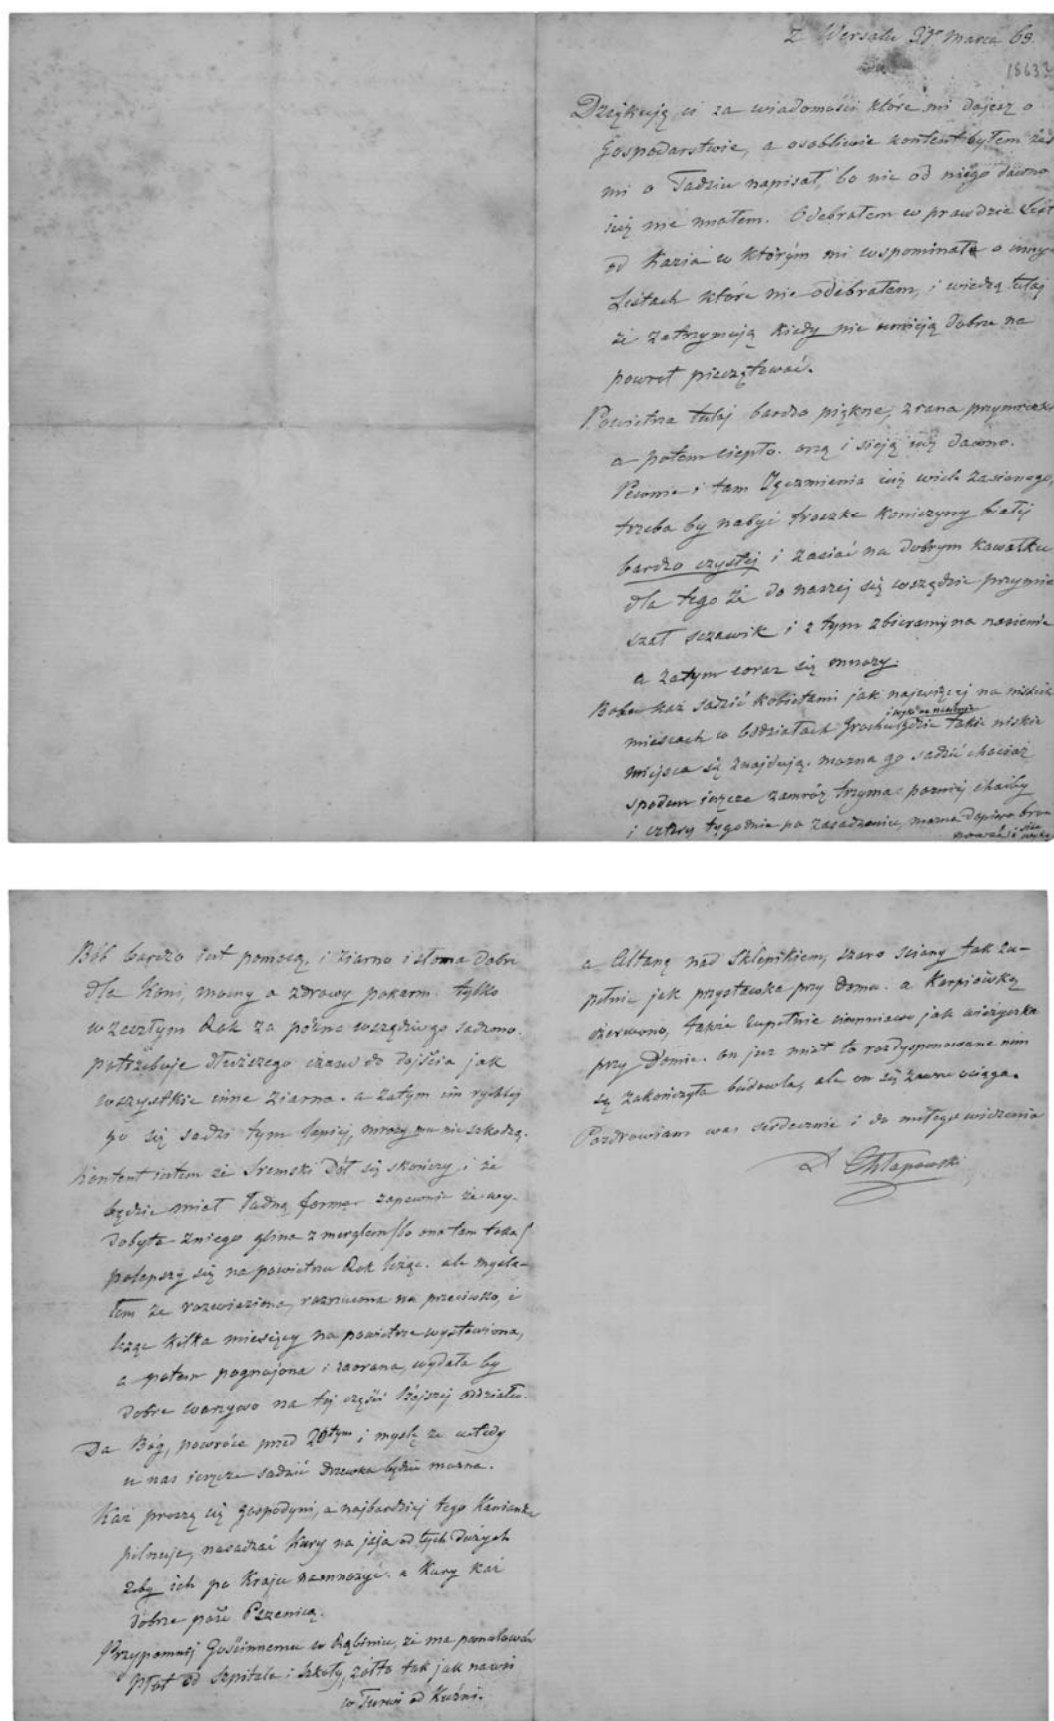 Z Wersalu 3go Marca 63.
1863?
Dziękuję ci za wiadomości które mi dajesz o
Gospodarstwie, a osobliwie kontent byłem żeś
mi o Tadziu napisał, bo nic od niego dawno
iuż nie miałem. Odebrałem w prawdzie List
od Kazia w którym mi wspominał o
Listach które nie odebrałem, i wiedzą tutaj
że zatrzymują kiedy nie umieją dobrze na
powrót pieczętować.
Powietrze tutaj bardzo piękne, zrana przymrozki
a potem ciepło. orzą i sieją iuż dawno.
Pewnie i tam Jęczmienia iuż wiele zasianego,
trzeba by nabyć troszkę Koniczyny białej
bardzo czystej i zasiać na dobrym kawałku
dla tego że do naszej się wszędzie przymie
szał szczawik i z tym zbieramy na nasienie
a zatym coraz się mnoży.
Bobu każ sadzić kobietami jak najwięcej na niskich
mieiscach w oddziałach Grochu gdzie takie niskie
miejsca się znajdują. można go sadzić chociaż
spodem ieszcze zamróz trzyma. pozniej choćby
i cztery tygodnie po zasadzeniu, można dopiero bro
Bób bardzo iest pomocą, i ziarno i słoma dobre
dla koni, mocny a zdrowy pokarm. tylko
w zeszłym Rok za późno wszędzie go sadzono.
potrzebuje dłuższego czasu do dojścia jak
wszystkie inne ziarna. a zatym im rychlej
go się sadzi tym lepiej, mrozy mu nie szkodzą.
Kontent iestem że Sremski Dół się skończy, i że
będzie miał ładną formę. zapewne że wy-
dobyta z niego glina z merglem /bo ona tam taka/
polepszy się na powietrzu Rok leżąc. ale myśla-
łem że rozwieziona, rozrzucona na przeciwko, i
leżąc kilka miesięcy na powietrze wystawiona,
a potem pognojona i zaorana, wydała by
dobre warzywo na tej części lżejszej oddziału.
Da Bóg, powrócę przed 20tym i myślę że wtedy
u nas ieszcze sadzić drzewka będzie można.
Każ proszę cię gospodyni, a najbardziej tego
pilnuje, nasadzać Kury na jaja od tych dużych
żeby ich po Kraju namnożyć. a Kury każ
dobrze paść Pszenicą.
Przypomnij Gościnnemu w Rąbiniu, że ma pomalować
Płot od Szpitala i Szkoły, żółto tak jak nowy
w Turwi od Kuźni.
a Altanę nad Sklepikiem, szaro ściany tak zu-
pełnie jak przystawka przy domu. a Karpiówkę
czerwono, także zupełnie ciemniawo jak wieżyczka
przy Domie. on już miał to rozdysponowane nim
się zakończyła budowla, ale on się zawsze ociąga.
Pozdrawiam was serdecznie i do miłego widzenia
D Chłapowski